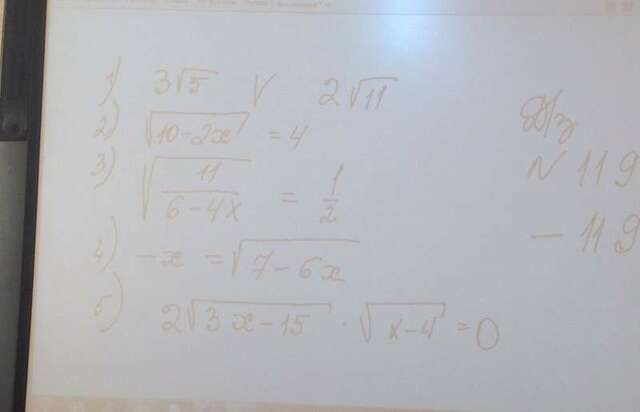 1) 3√5 V 2√11
2) √(10-2x) = 4
3) √(11/(6-4x)) = 1/2
4) -x = √(7-6x)
5) 2√(3x-15) · √(x-4) = 0
Д/з
N 119
- 119